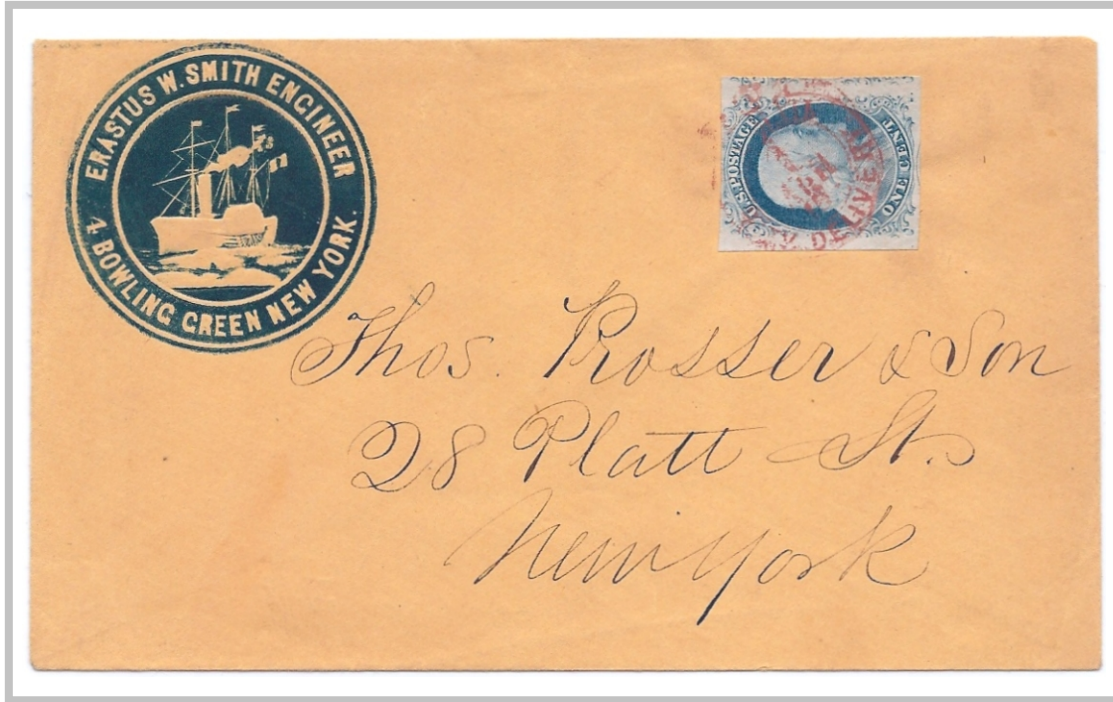 ERASTUS W. SMITH ENGINEER
4 BOWLING GREEN NEW YORK.
U.S. POSTAGE
ONE CENT
DELIVERED
Thos. Prosser & Son
28 Platt St.
New York